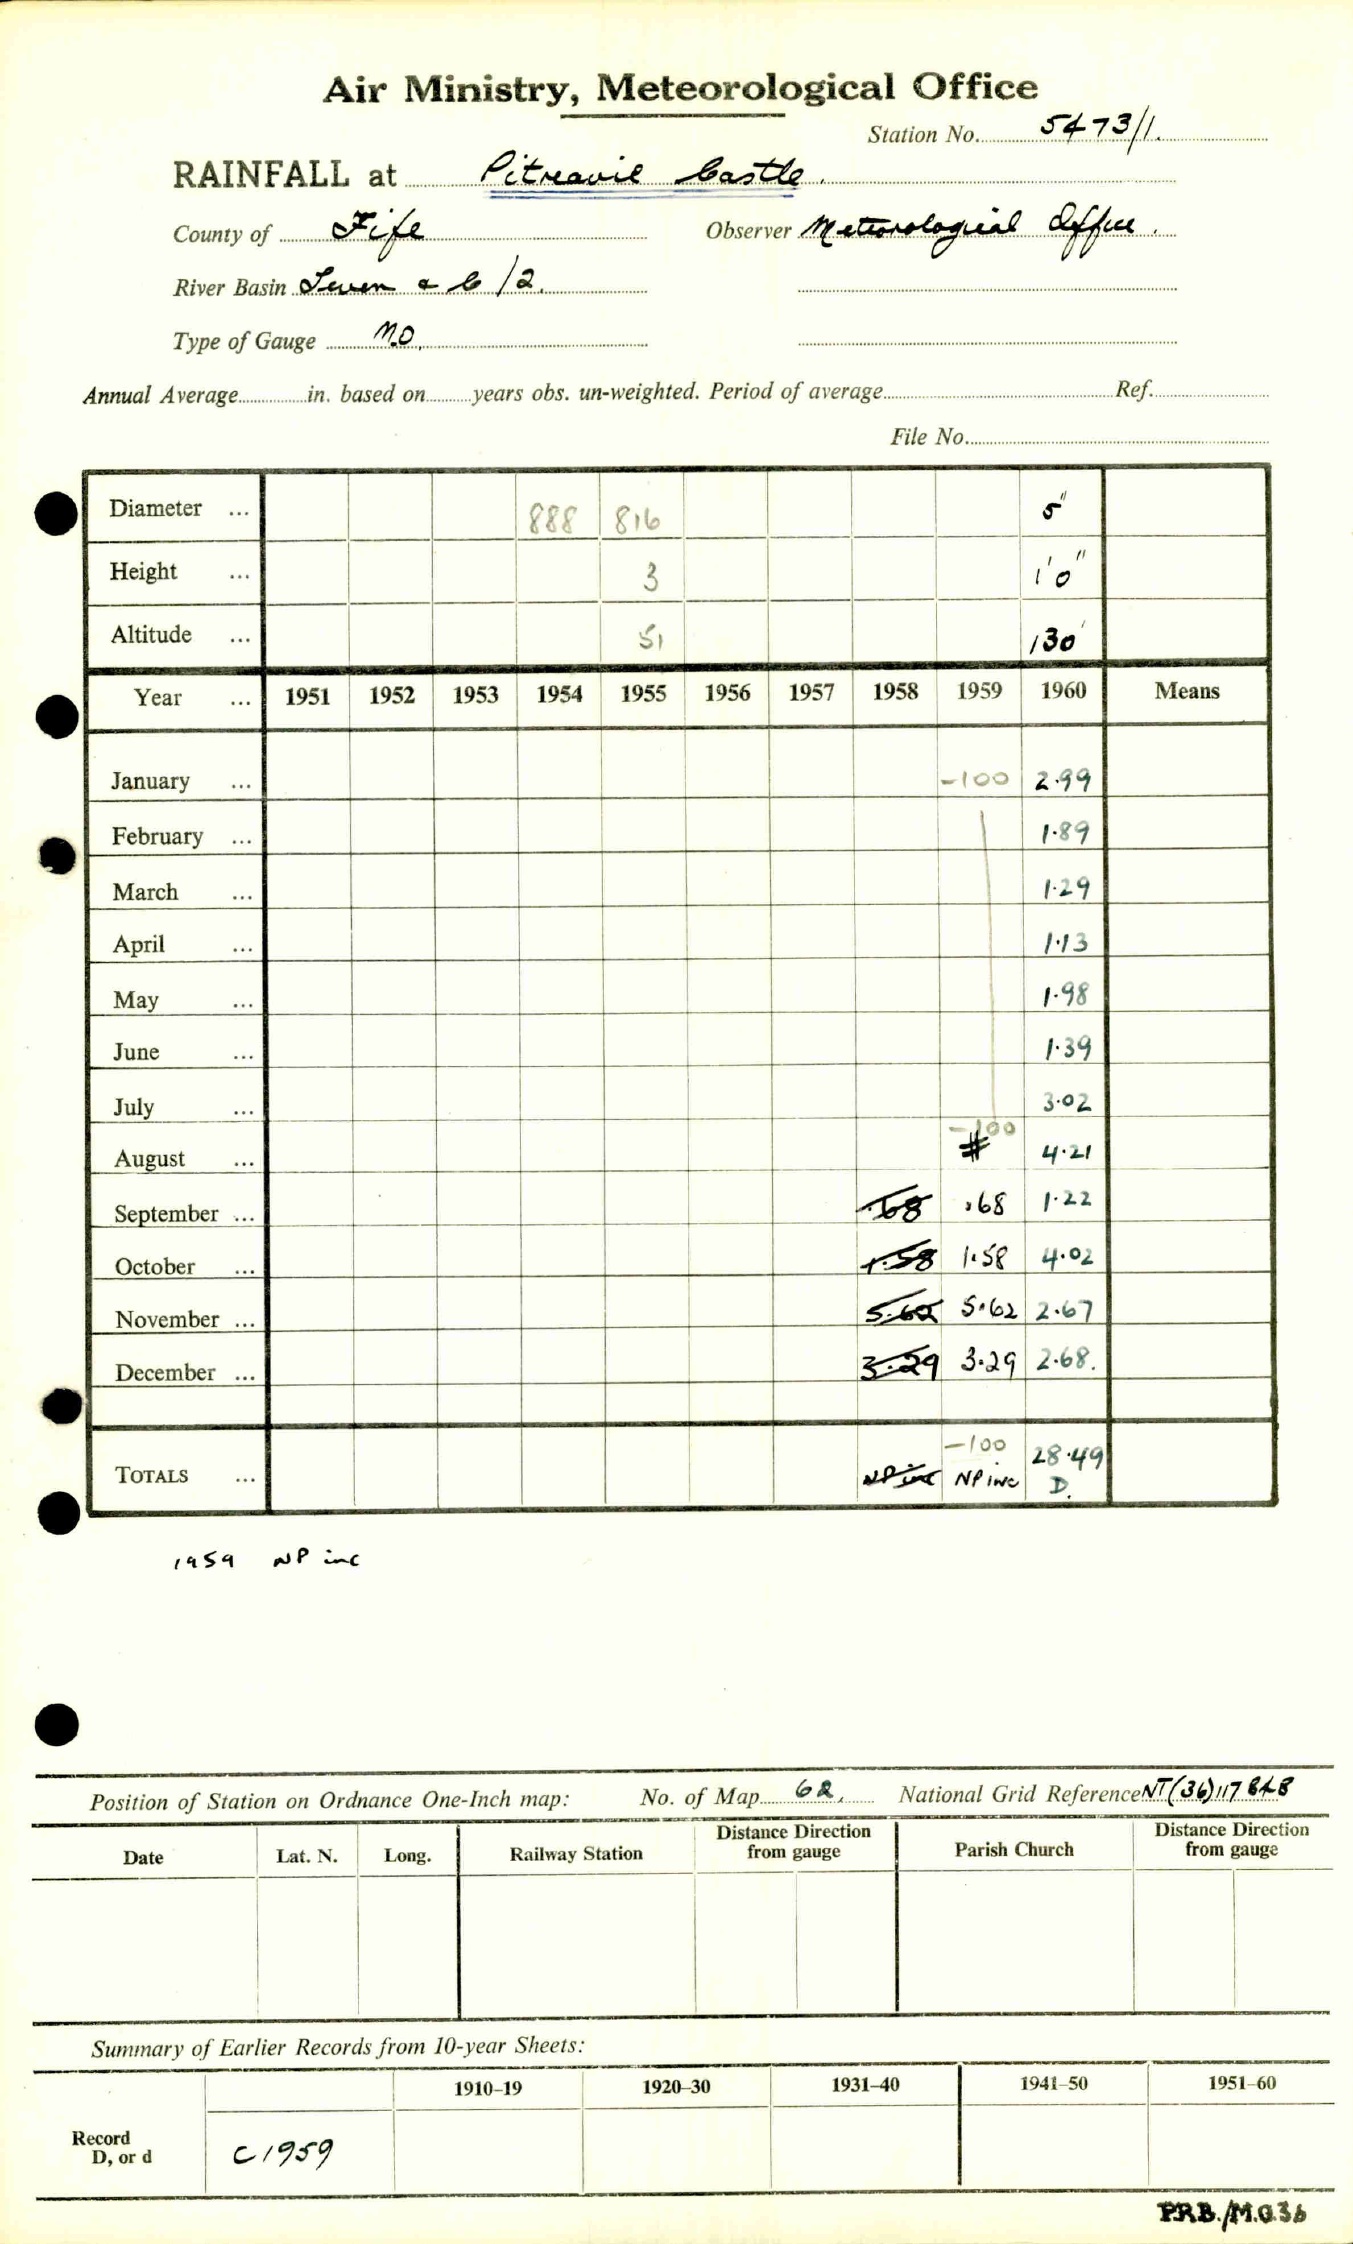 Air Ministry, Meteorological Office
Station No. 5473/1.
RAINFALL at Pitreavie Castle.
County of Fife Observer Meteorological Office.
River Basin Leven & C /2.
Type of Gauge M.O.
Annual Average in. based on years obs. un-weighted. Period of average Ref.
File No.
Diameter ... 888 816 5"
Height ... 3 1'0"
Altitude ... 51 130'
Year ... 1951 1952 1953 1954 1955 1956 1957 1958 1959 1960 Means
January ... -100 2.99
February ... 1.89
March ... 1.29
April ... 1.13
May ... 1.98
June ... 1.39
July ... 3.02
August ... -100 # 4.21
September ... .68 .68 1.22
October ... 1.58 1.58 4.02
November ... 5.62 5.62 2.67
December ... 3.29 3.29 2.68.
TOTALS ... NP inc -100 NP inc 28.49 D.
1959 NP inc
Position of Station on Ordnance One-Inch map: No. of Map 62. National Grid Reference NT(36)117848
Date Lat. N. Long. Railway Station Distance Direction from gauge Parish Church Distance Direction from gauge
Summary of Earlier Records from 10-year Sheets:
1910–19 1920–30 1931–40 1941–50 1951–60
Record
D, or d C1959
P.R.B./M.O.36